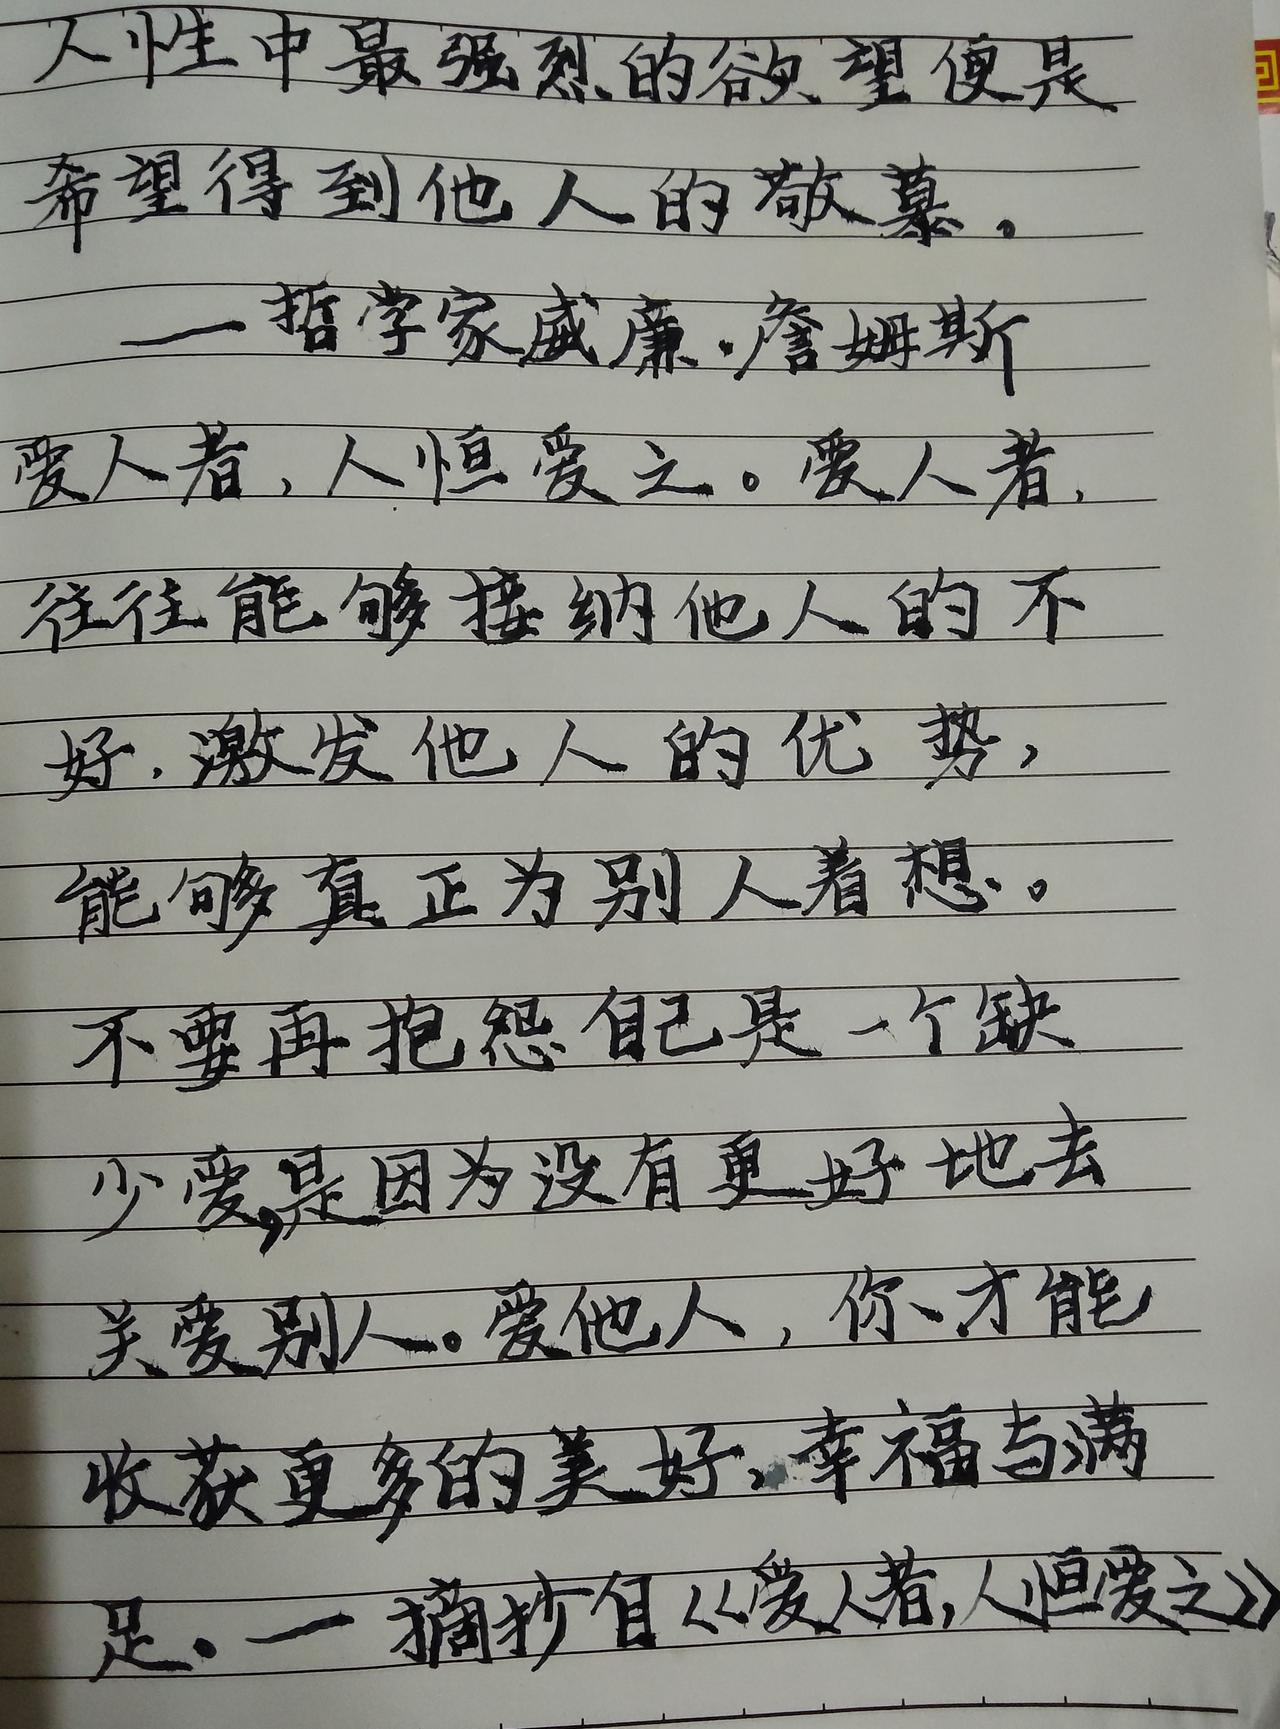 人性中最强烈的欲望便是
希望得到他人的敬慕。
—哲学家威廉·詹姆斯
爱人者,人恒爱之。爱人者,
往往能够接纳他人的不
好,激发他人的优势,
能够真正为别人着想。
不要再抱怨自己是一个缺
少爱,是因为没有更好地去
关爱别人。爱他人,你才能
收获更多的美好、幸福与满
足。—摘抄自《爱人者,人恒爱之》